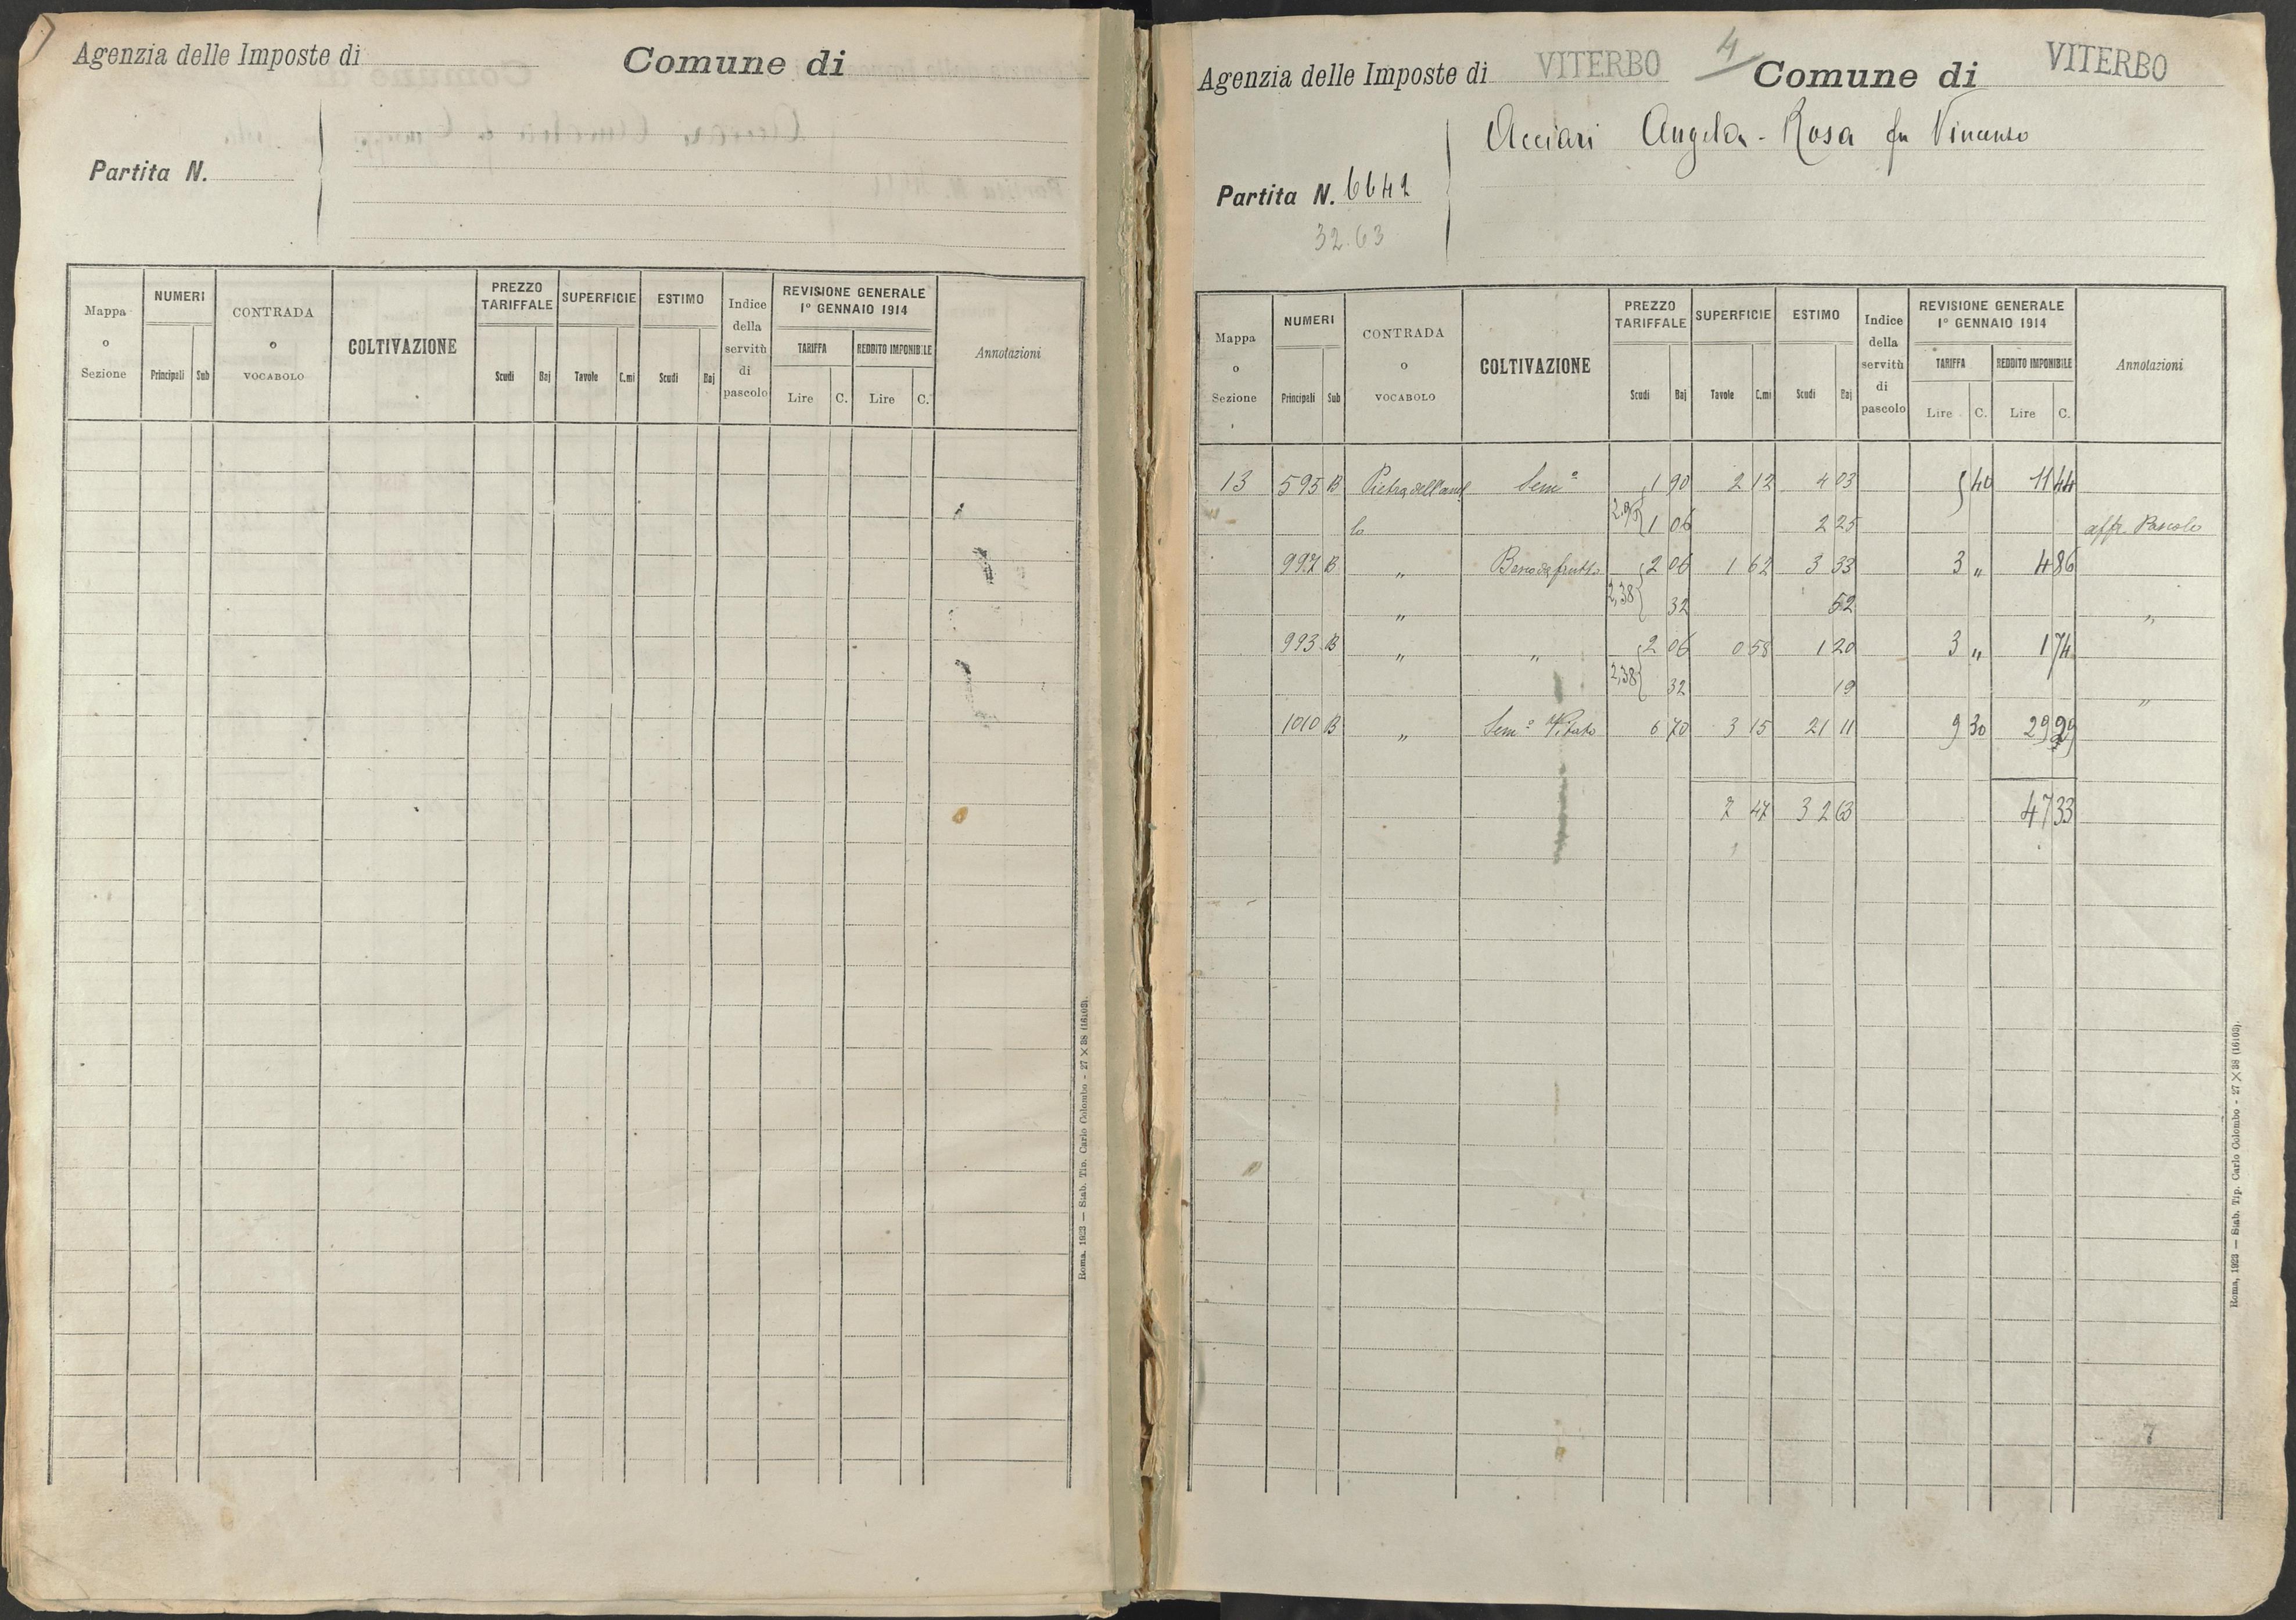 Agenzia delle Imposte di
Comune di
Partita N.
Mappa o Sezione
NUMERI
Principali Sub
CONTRADA o VOCABOLO
COLTIVAZIONE
PREZZO TARIFFALE
Scudi Baj
SUPERFICIE
Tavole C.mi
ESTIMO
Scudi Baj
Indice della servitù di pascolo
REVISIONE GENERALE
1° GENNAIO 1914
TARIFFA REDDITO IMPONIBILE
Lire C. Lire C.
Annotazioni
Roma, 1923 — Stab. Tip. Carlo Colombo - 27 X 38 (16103).
Agenzia delle Imposte di VITERBO 4 Comune di VITERBO
Acciari Angela-Rosa fu Vincenzo
Partita N. 6642
32.63
Mappa o Sezione
NUMERI
Principali Sub
CONTRADA o VOCABOLO
COLTIVAZIONE
PREZZO TARIFFALE
Scudi Baj
SUPERFICIE
Tavole C.mi
ESTIMO
Scudi Baj
Indice della servitù di pascolo
REVISIONE GENERALE
1° GENNAIO 1914
TARIFFA REDDITO IMPONIBILE
Lire C. Lire C.
Annotazioni
13 595 B Sem° 1 90 2 12 4 03 5 40 11 44
1 06 2 25 affr. Pascolo
997 B " 2 06 1 62 3 33 3 " 4 86
" 2,38 32 52 "
993 B " " 2 06 0 58 1 20 3 " 1 74
2,38 32 19 "
1010 B " Sem° Vitato 6 70 3 15 21 11 9 30 29 29
7 47 32 63 47 33
7
Roma, 1923 — Stab. Tip. Carlo Colombo - 27 X 38 (16103).